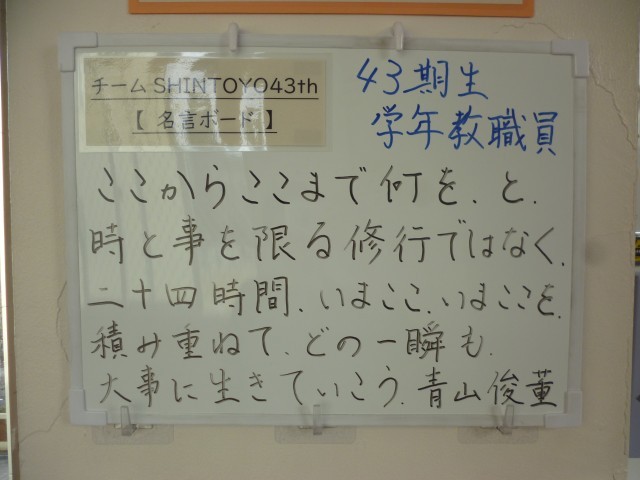 チーム SHINTOYO43th
【 名言ボード 】
43期生
学年教職員
ここからここまで何を、と、
時と事を限る修行ではなく、
二十四時間、いまここ、いまここを、
積み重ねて、どの一瞬も、
大事に生きていこう。青山俊董